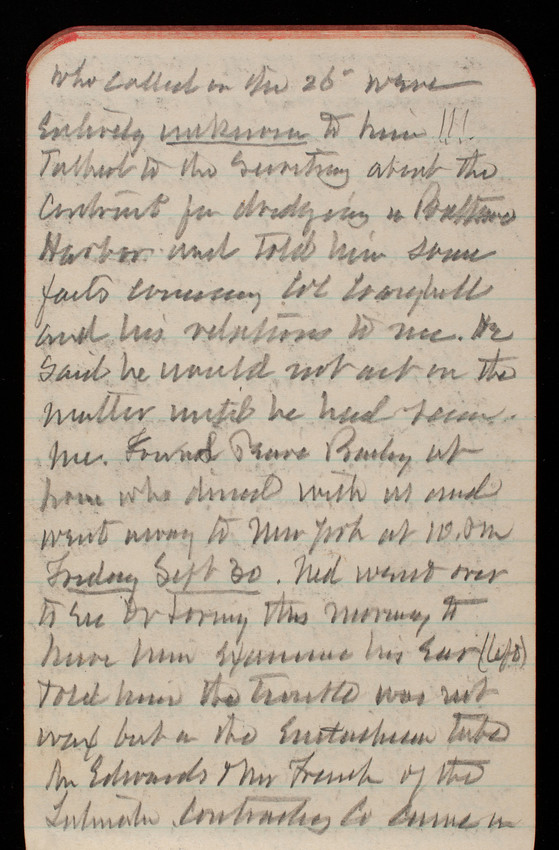 who called on the 26" were
Entirely unknown to him !!!
Talked to the Secretary about the
Contract for dredging in
Harbor and told him some
facts concerning Col Campbell
and his relations to me. He
said he would not act on the
matter until he had seen
me. Found Bailey at
home who dined with us and
went away to New York at 10. Pm
Friday Sept 30. Ned went over
to see Dr Loring this morning to
have him Examine his Ear (left)
Told him the trouble was not
wax but in the Eustachian tube
Mr Edwards & Mr French of the
Contracting Co came in